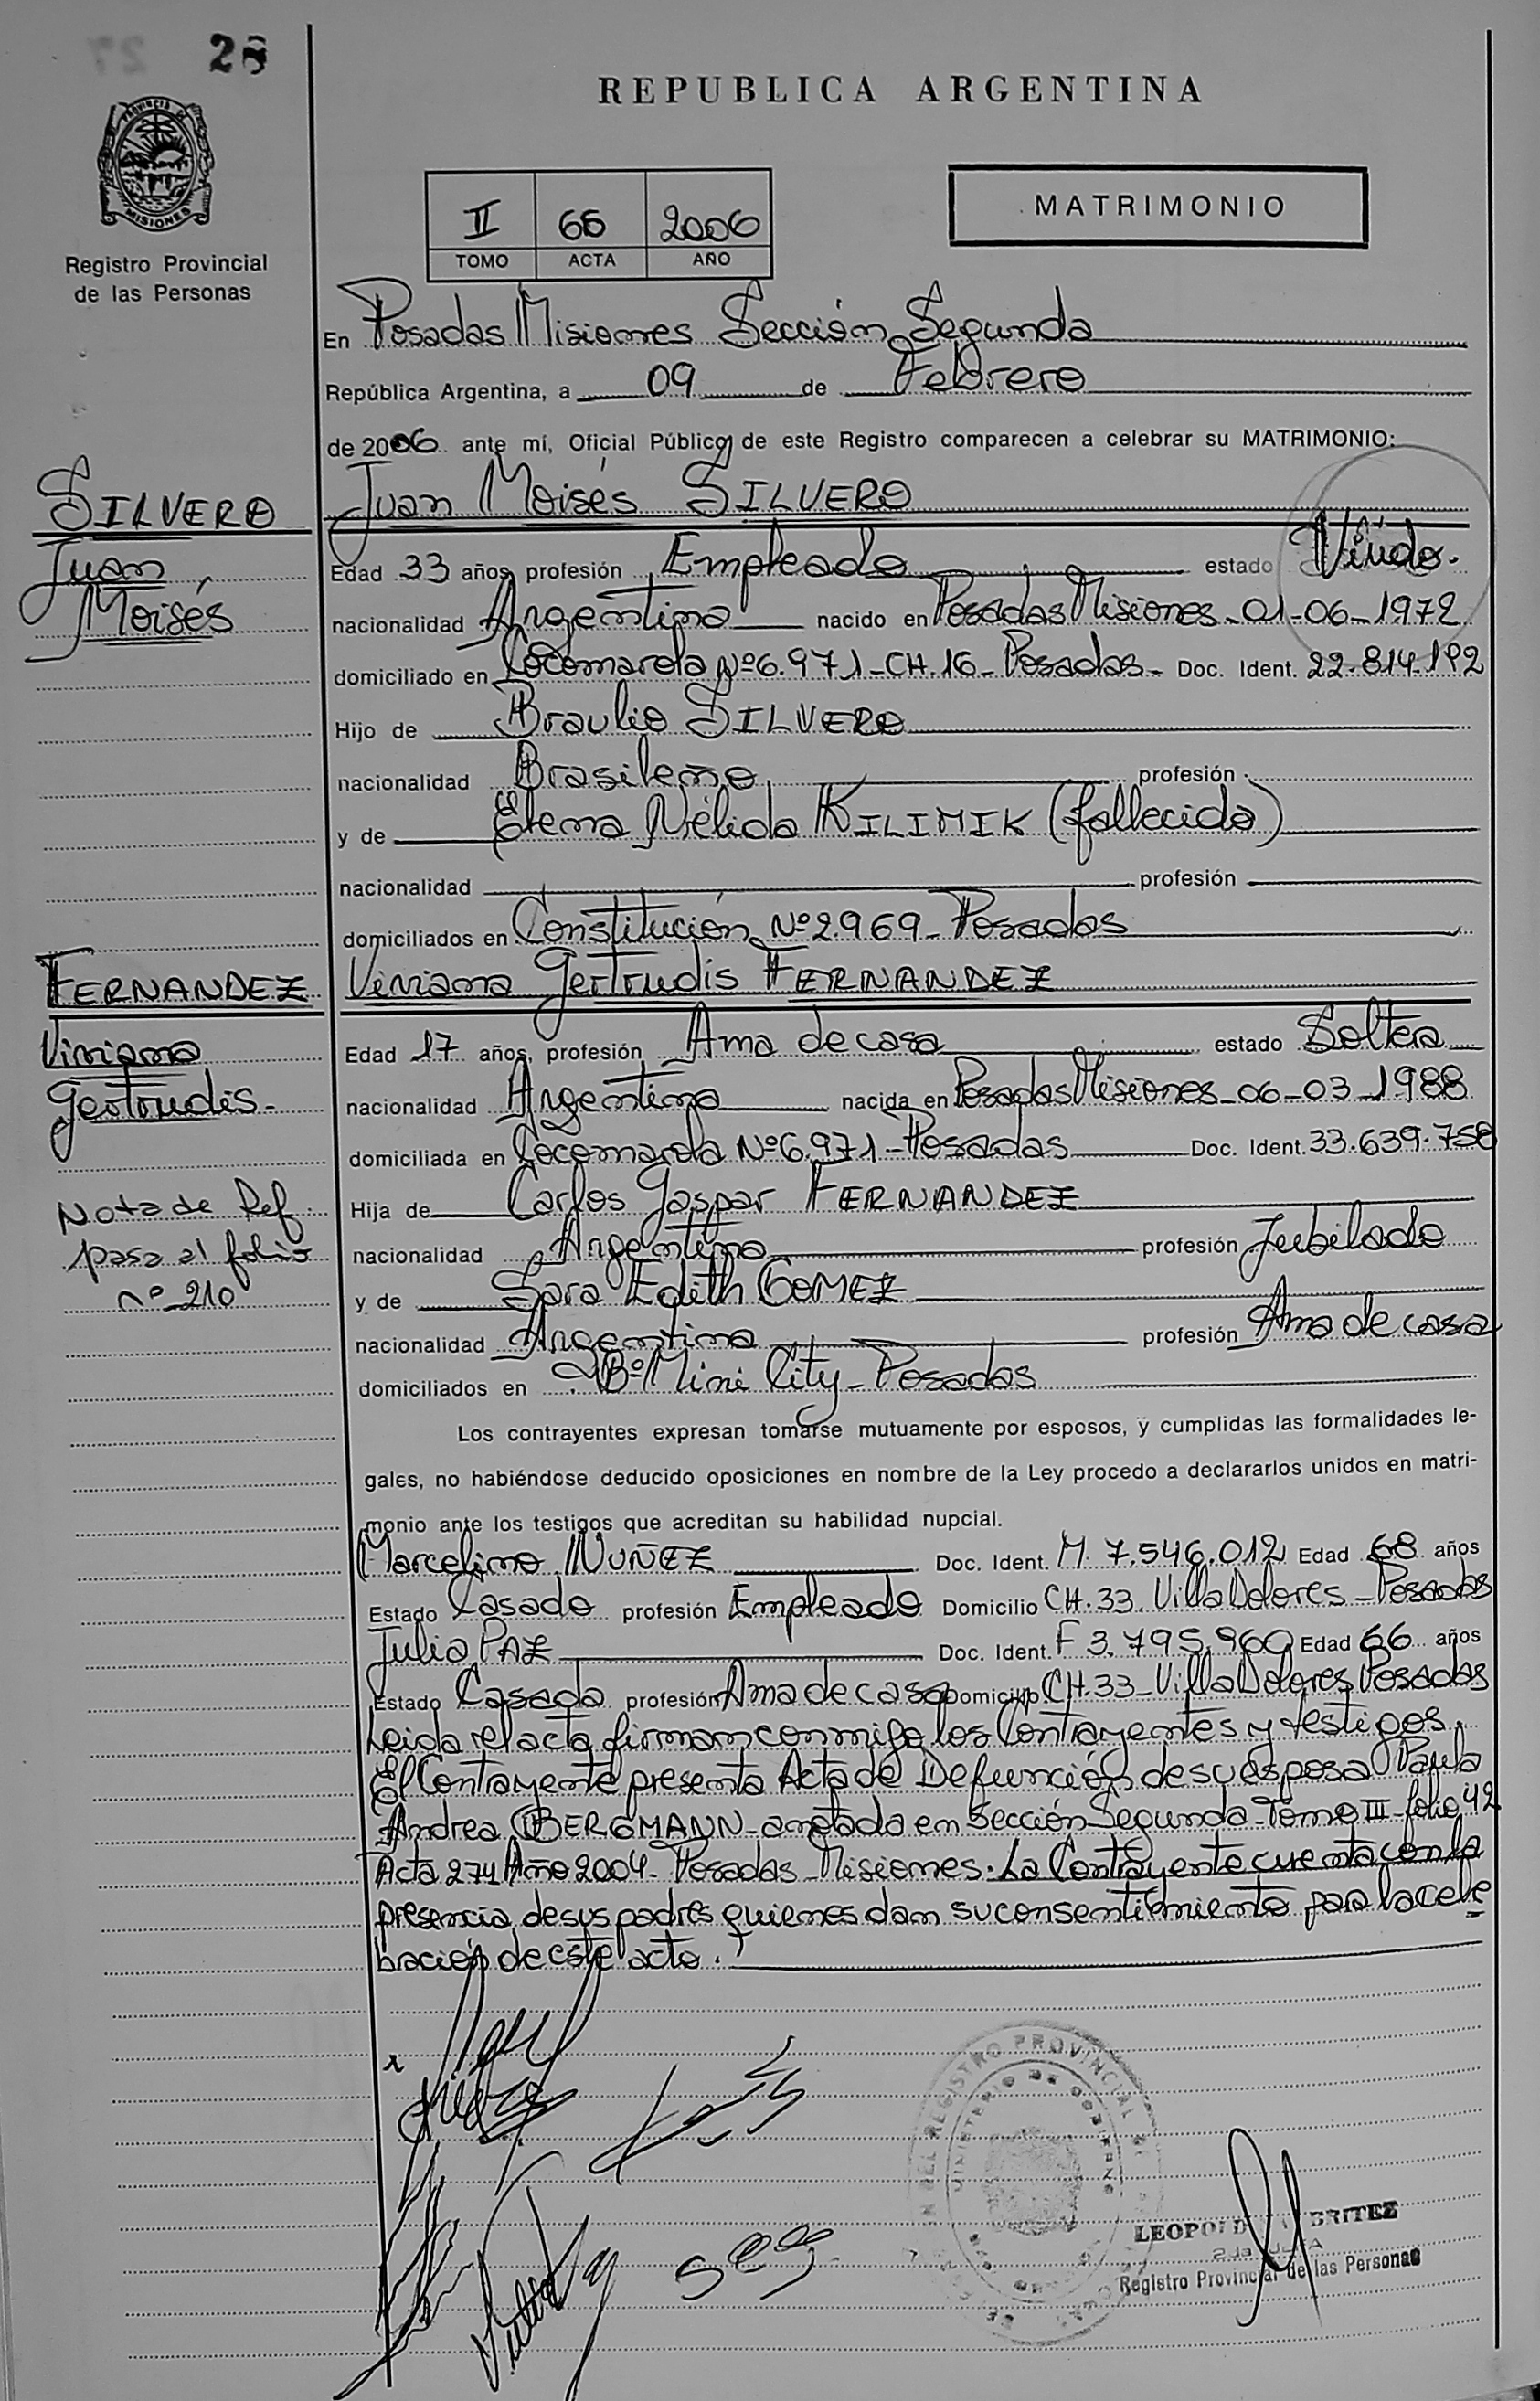 28
REPUBLICA ARGENTINA
PROVINCIA DE
MISIONES
Registro Provincial
de las Personas
II 66 2006
TOMO ACTA AÑO
MATRIMONIO
En Posadas Misiones Sección Segunda
República Argentina, a 09 de Febrero
de 2006 ante mí, Oficial Público de este Registro comparecen a celebrar su MATRIMONIO:
SILVERO
Juan
Moisés
Juan Moisés SILVERO
Edad 33 años, profesión Empleado estado Viudo.
nacionalidad Argentino nacido en Posadas Misiones-01-06-1972
domiciliado en Cocomarola Nº6.971-CH.16-Posadas- Doc. Ident. 22.814.192
Hijo de Braulio SILVERO
nacionalidad Brasileño profesión
y de Elena Nélida KILIMIK (fallecida)
nacionalidad profesión
domiciliados en Constitución Nº2.969-Posadas
FERNANDEZ
Viviana
Gertrudis-
Viviana Gertrudis FERNANDEZ
Edad 17 años, profesión Ama de casa estado Soltera
nacionalidad Argentina nacida en Posadas Misiones-06-03-1988
domiciliada en Cocomarola Nº6.971-Posadas Doc. Ident. 33.639.758
Nota de Ref.
pasa al folio
nº 210
Hija de Carlos Gaspar FERNANDEZ
nacionalidad Argentino profesión Jubilado
y de Sara Edith GOMEZ
nacionalidad Argentina profesión Ama de casa
domiciliados en Bº Mini City-Posadas
Los contrayentes expresan tomarse mutuamente por esposos, y cumplidas las formalidades le-
gales, no habiéndose deducido oposiciones en nombre de la Ley procedo a declararlos unidos en matri-
monio ante los testigos que acreditan su habilidad nupcial.
Marcelino NUÑEZ Doc. Ident. M. 7.546.012 Edad 68 años
Estado Casado profesión Empleado Domicilio CH.33. Villa Dolores-Posadas
Julia PAZ Doc. Ident. F 3.795.960 Edad 66 años
Estado Casada profesión Ama de casa Domicilio CH.33-Villa Dolores, Posadas
Leida el acta firman conmigo los Contrayentes y testigos.
El Contrayente presenta Acta de Defunción de su esposa Paula
Andrea BERGMANN-anotada en Sección Segunda-Tomo III-folio 42
Acta 274 Año 2004-Posadas-Misiones. La Contrayente cuenta con la
presencia de sus padres quienes dan su consentimiento para la cele
bración de este acto.
REGISTRO PROVINCIAL
MINISTERIO DE GOBIERNO
BRITEZ
Registro Provincial de las Personas